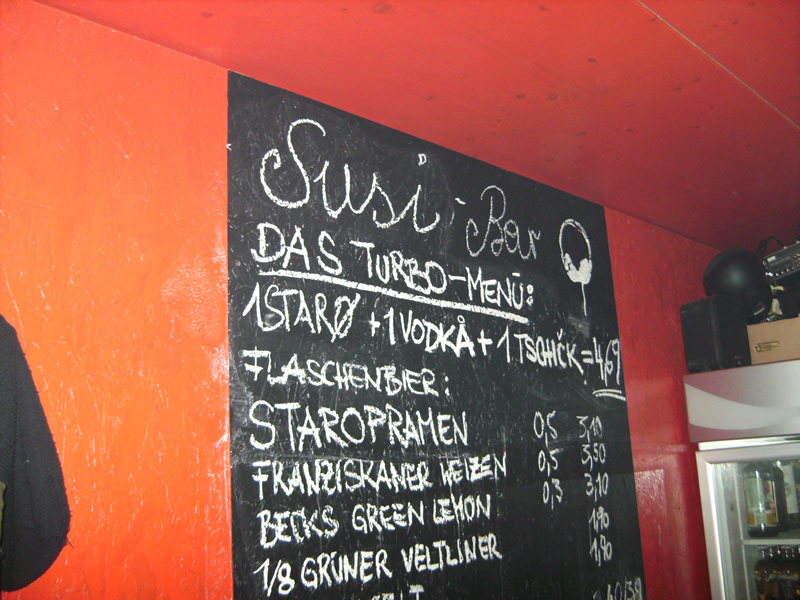 Susi-Bar
DAS TURBO-MENÜ:
1STARØ + 1VODKÅ + 1 TSCHĬCK = 4,69
FLASCHENBIER:
STAROPRAMEN 0,5 3,10
FRANZISKANER WEIZEN 0,5 3,50
BECKS GREEN LEMON 0,3 3,10
1/8 GRÜNER VELTLINER 1,90
1,80